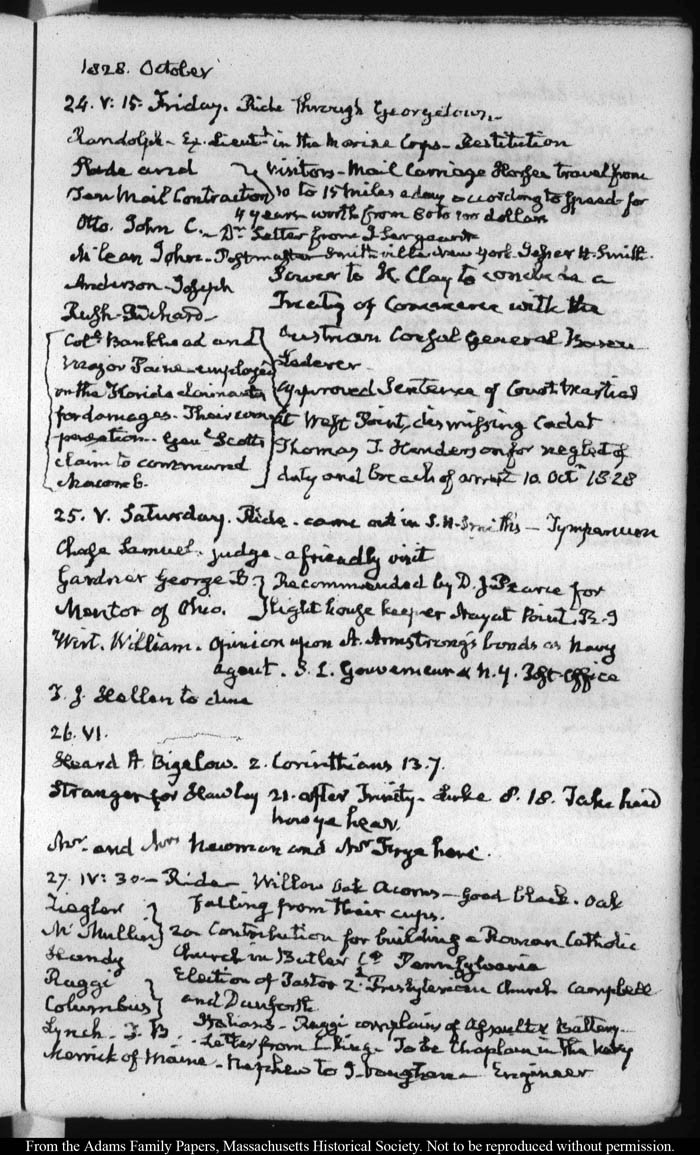 1828. October
24. V: 15. Friday. Ride through Georgetown.
Randolph - Ex. Lieutt in the Marine Corps - Restitution
Slade and } Visitors - Mail Carriage Horses travel from
Ten Mail Contractors } 10 to 15 miles a day according to speed - for
4 years - worth from 80 to 100 dollars
Otto. John C. - Dr. Letter from J Sergeant
McLean John - Postmaster Smithville New York. Jesper H. Smith.
Anderson - Joseph Power to H. Clay to conclude a
Rush - Richard - Treaty of Commerce with the
Col. Bankhead and Austrian Consul General Baron
Major Paine - employed Lederer -
on the Florida claimants Approved Sentence of Court Martial
for damages. Their com at West Point, dismissing Cadet
pensation. Genl. Scott's Thomas J. Henderson for neglect of
claim to command duty and breach of arrest 10 Octr. 1828
Macomb.
25. V. Saturday. Ride - came out in S. H. Smith's - Tympanum
Chase Samuel. judge - a friendly visit
Gardner George B } Recommended by D. J. Pearce for
Mentor of Ohio. } light house keeper Nayat Point. R. I
Wirt. William. Opinion upon A. Armstrong's bonds as Navy
agent. S. L. Gouverneur & N. Y. Post-Office
T. J. Hellen to dine
26. VI.
Heard A. Bigelow. 2. Corinthians 13. 7.
Stranger for Hawley 21. after Trinity - Luke 8. 18. Take heed
how ye hear.
Mr. and Mrs Newman and Mr Frye here.
27. IV: 30 - Ride - Willow Oak Acorns - Good black. Oak
Ziegler } Falling from their cups.
McMullin } 20 Contribution for building a Roman Catholic
Handy Church in Butler Co. Pennsylvania
Raggi } Election of Pastor 2d. Presbyterian Church Campbell
Columbus } and Danforth
Italians - Raggi complains of Assault & Battery -
Lynch. J. B. - Letter from - King - To be Chaplain in the Navy
Merrick of Maine - Nephew to J. Vaughan - Engineer
From the Adams Family Papers, Massachusetts Historical Society. Not to be reproduced without permission.